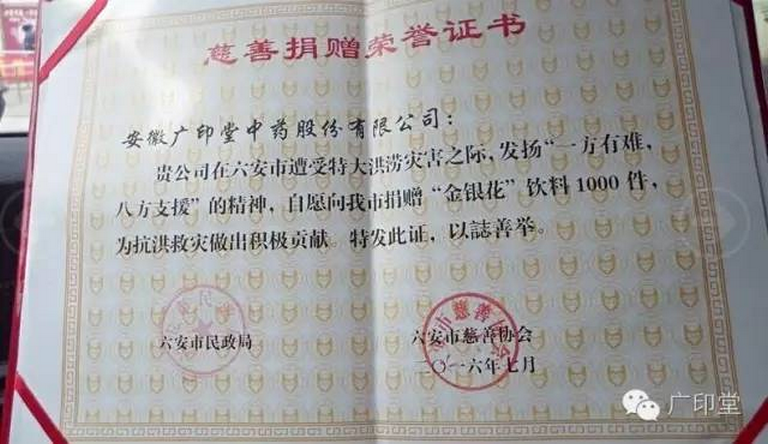 慈善捐赠荣誉证书
安徽广印堂中药股份有限公司：
贵公司在六安市遭受特大洪涝灾害之际，发扬“一方有难，
八方支援”的精神，自愿向我市捐赠“金银花”饮料1000件，
为抗洪救灾做出积极贡献。特发此证，以誌善举。
六安市民政局
六安市慈善协会
二〇一六年七月
广印堂